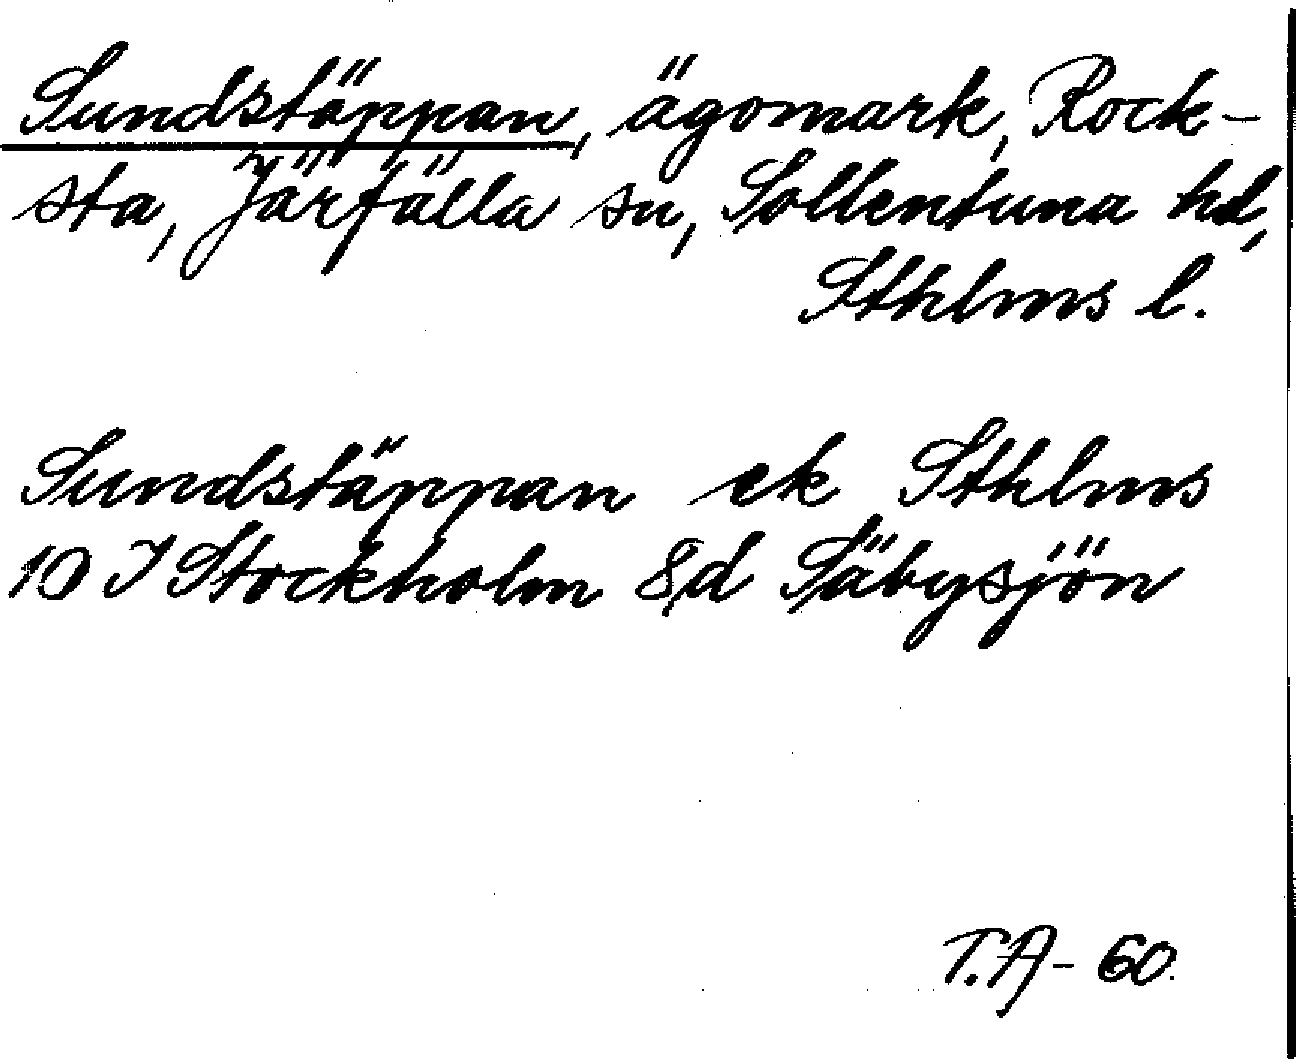 Sundstäppan, ägomark, Rock-
sta, Järfälla sn, Sollentuna hd,
Sthlms l.
Sundstäppan ek Sthlms
10 I Stockholm 8d Säbysjön
T.A- 60